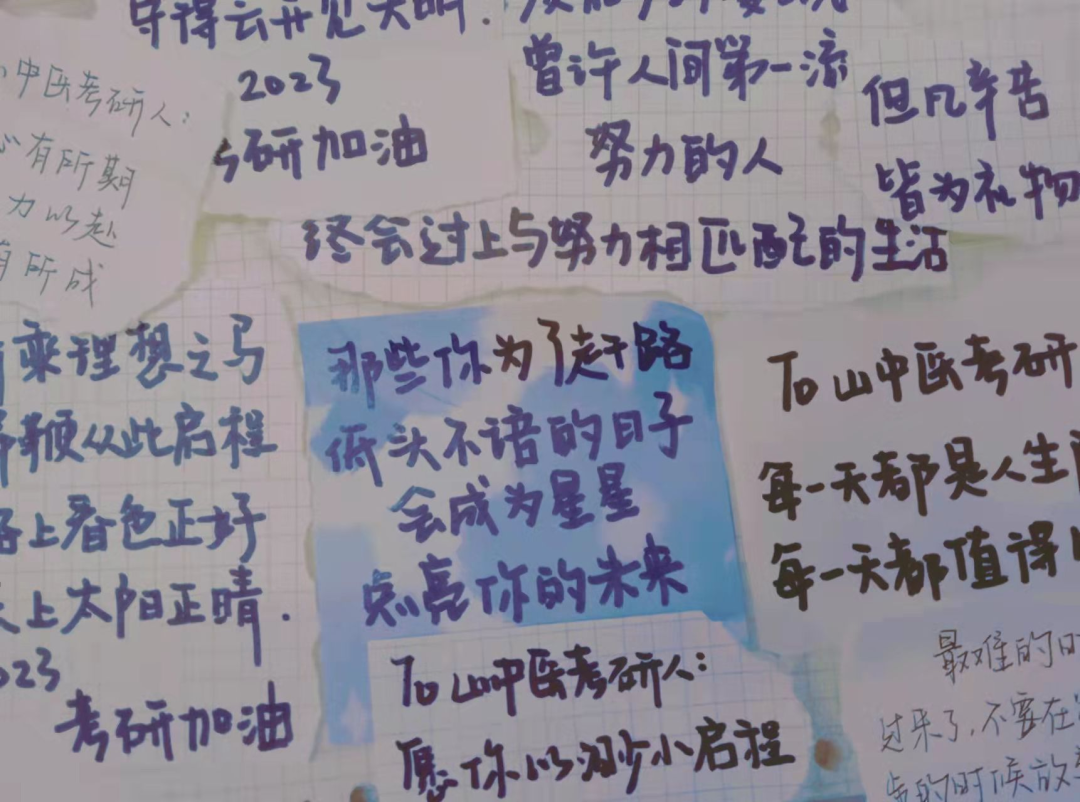 守得云开见天明.
2023
考研加油
中医考研人:
心有所期
力以赴
有所成
曾许人间第一流
努力的人
终会过上与努力相匹配的生活
但凡辛苦
皆为礼物
乘理想之马
鞭从此启程
路上春色正好
天上太阳正晴.
2023
考研加油
那些你为了赶路
低头不语的日子
会成为星星
点亮你的未来
To 山中医考研人:
愿你以渺小启程
To 山中医考研
每一天都是人生
每一天都值得
最难的日
过来了,不要在
的时候放